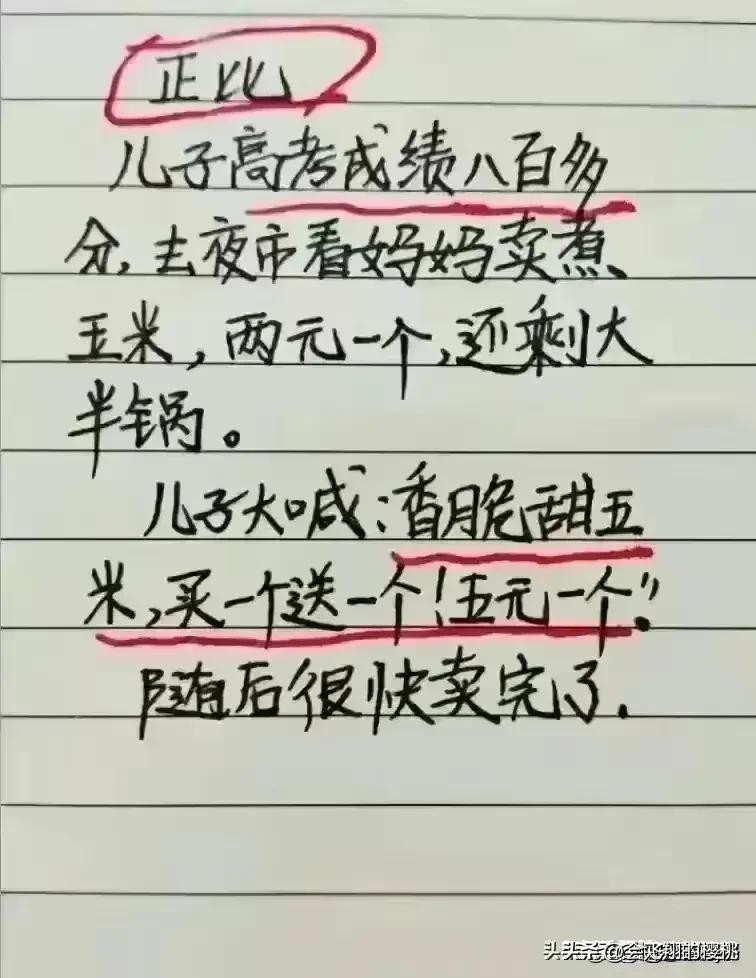 正比
儿子高考成绩八百多
分,去夜市看妈妈卖煮
玉米,两元一个,还剩大
半锅。
儿子大喊:香脆甜玉
米,买一个送一个!五元一个"!
随后很快卖完了.
头条 @会飞翔的樱桃